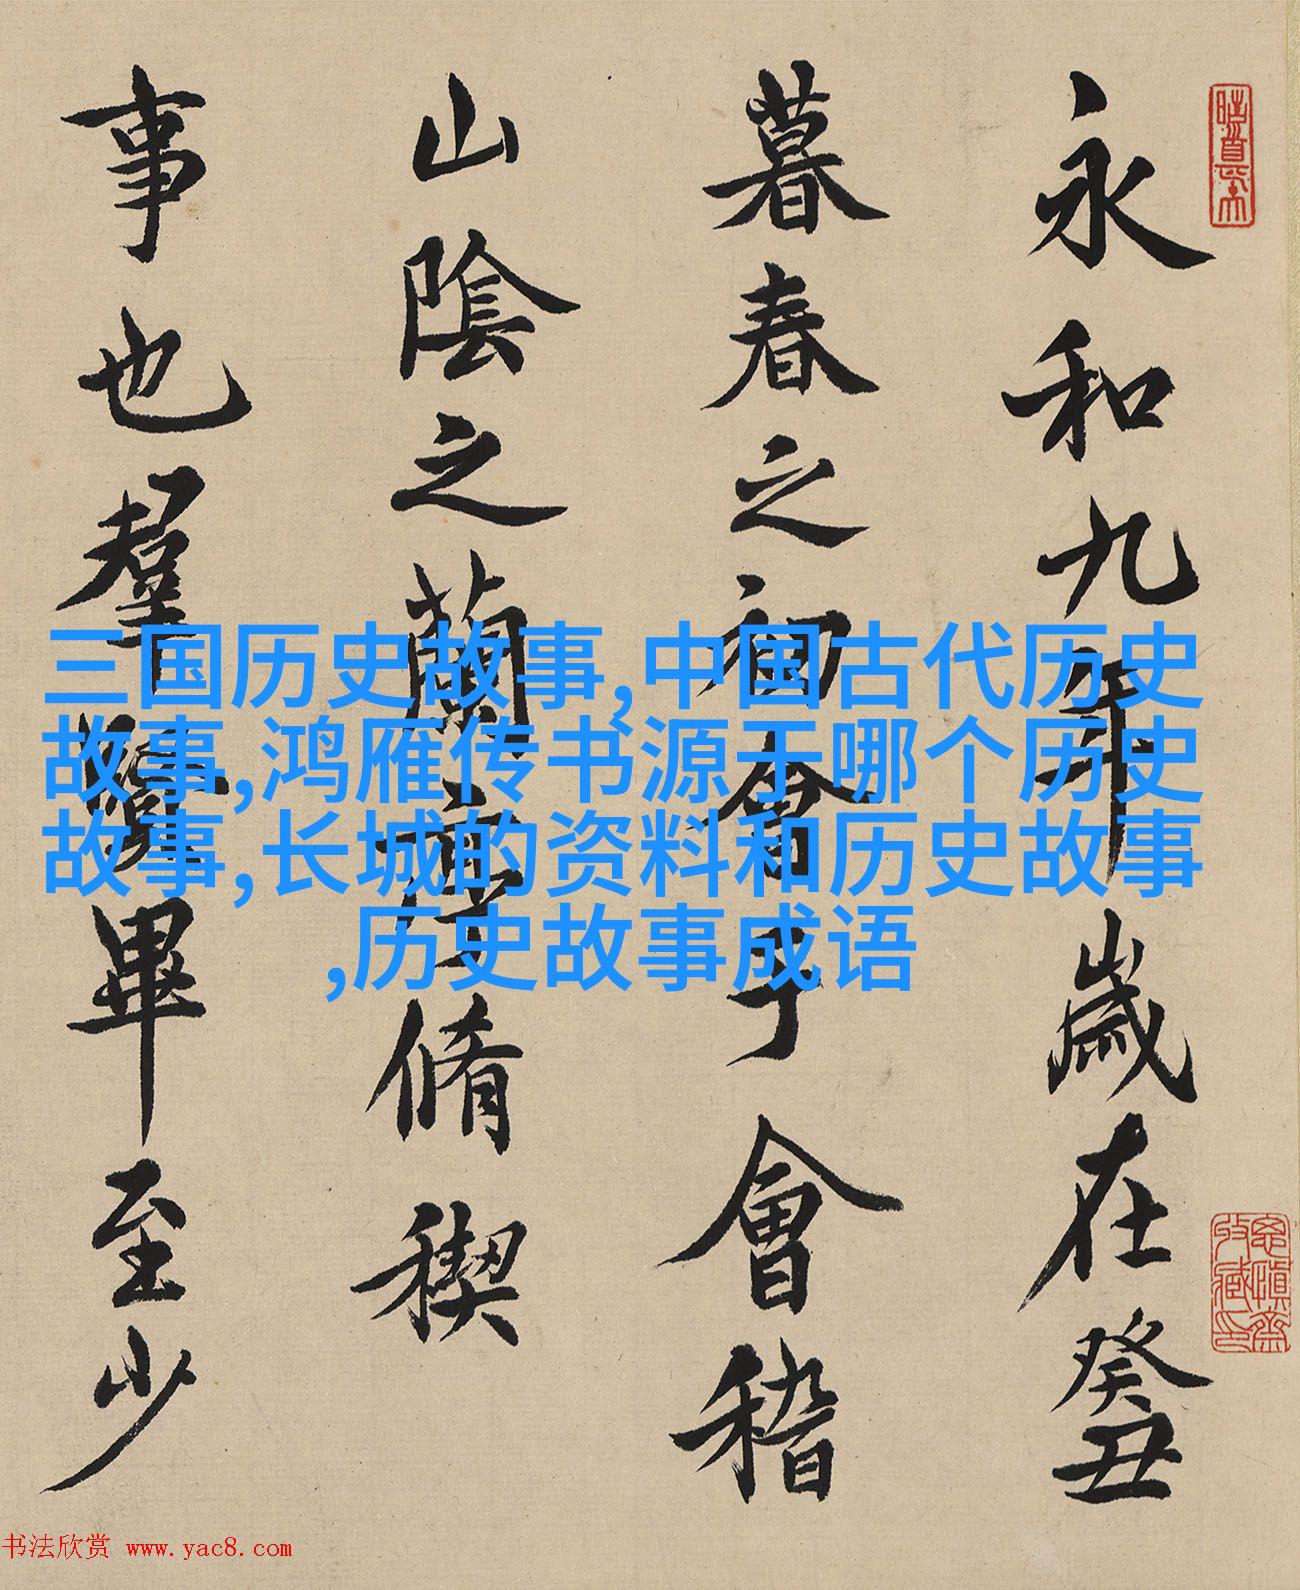 永和九年歲在癸丑
暮春之初會于會稽
山陰之蘭亭脩稧
事也羣賢畢至少
三国历史故事,中国古代历史
故事,鸿雁传书源于哪个历史
故事,长城的资料和历史故事
,历史故事成语
书法欣赏 www.yac8.com